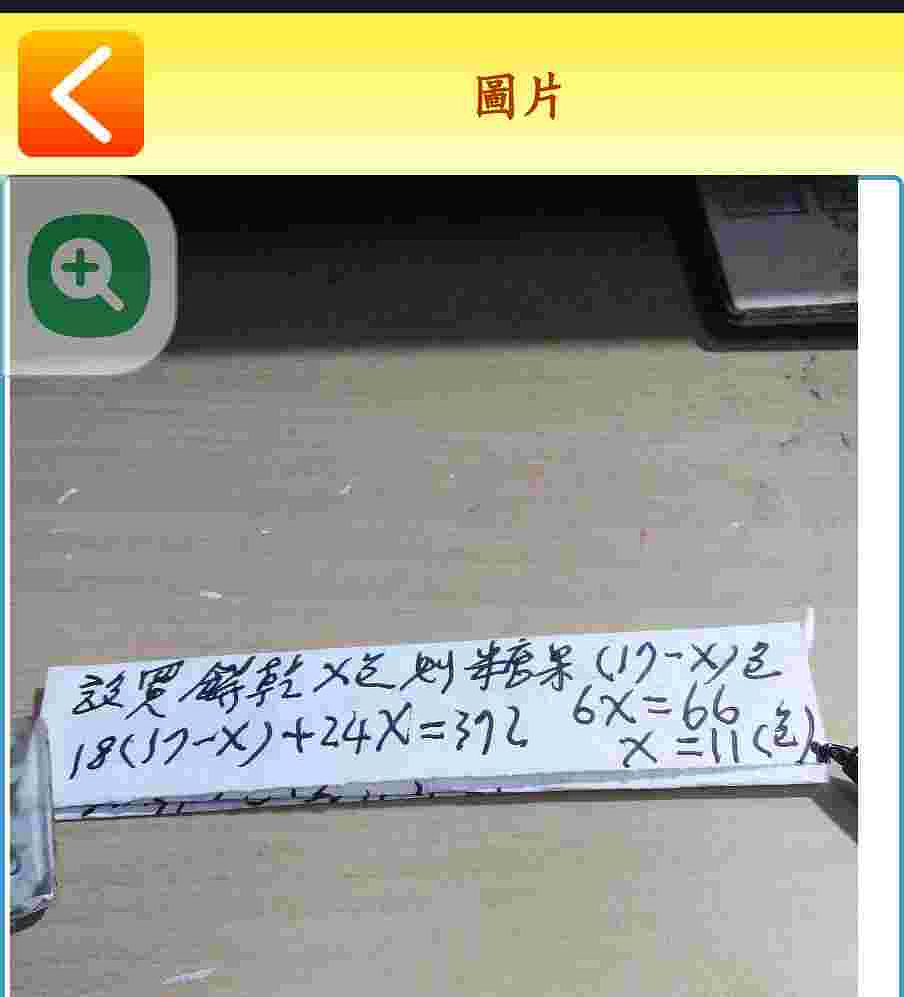 圖片
設買餅乾x包則糖果(17-x)包
18(17-x)+24x=372
6x=66
x=11(包)